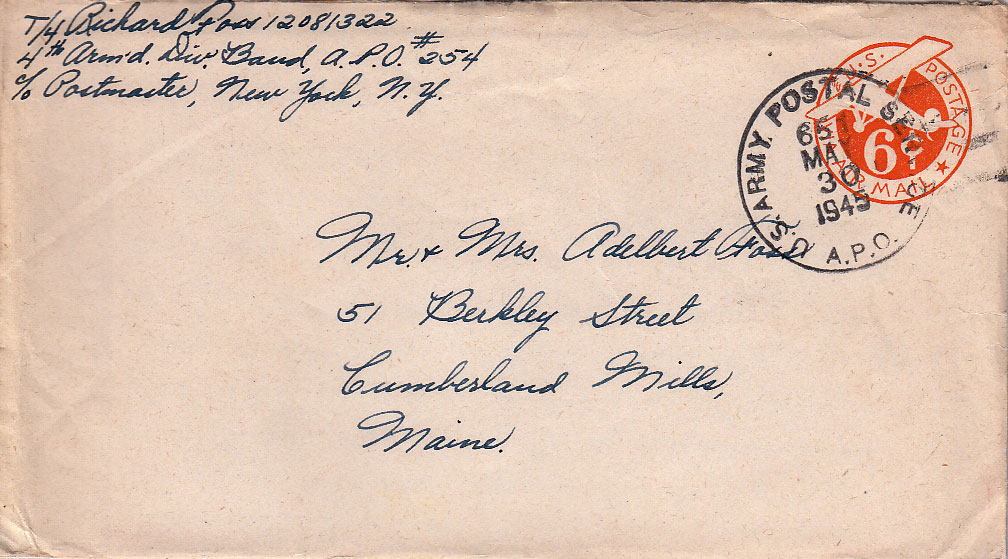 T/4 Richard Foss 12081322
4th Arm'd. Div. Band, A.P.O. #254
c/o Postmaster, New York, N.Y.
U.S. POSTAGE
6¢
AIR MAIL
U.S. ARMY POSTAL SERVICE
MAY
30
1945
A.P.O.
Mr. + Mrs. Adelbert Foss
51 Berkley Street
Cumberland Mills,
Maine.